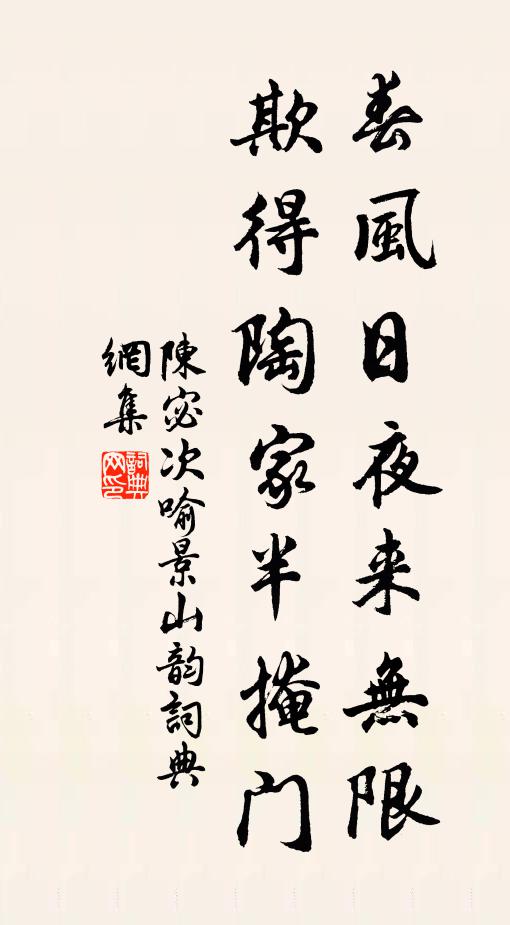 春風日夜来無限
欺得陶家半掩门
陳宓次喻景山韵詞典
網集
詞典
网印